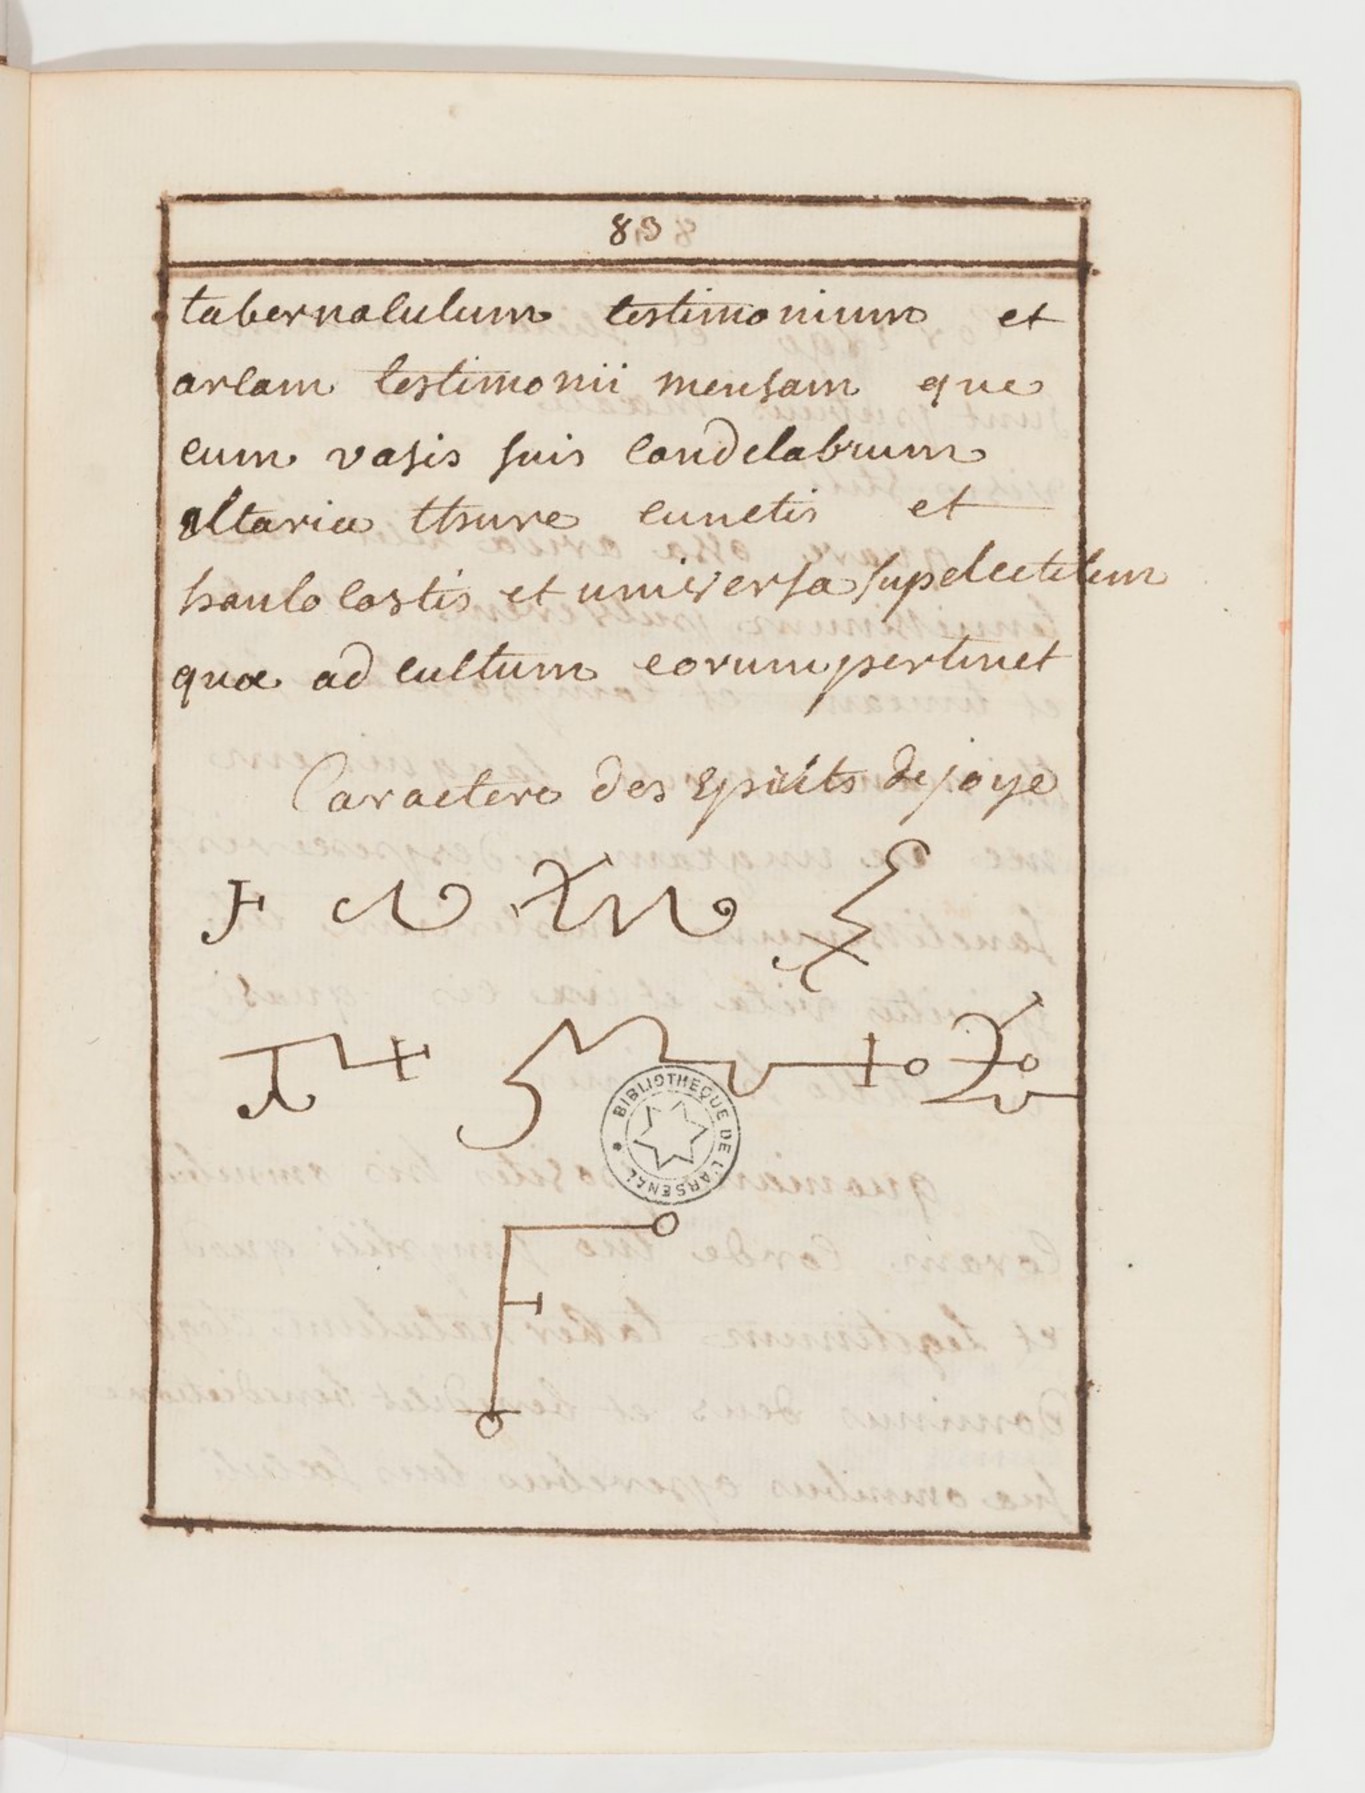 83
tabernaculum testimonium et
arcam testimonii mensam que
cum vasis suis candelabrum
altaria thure cunctis et
haulocastis et universa supelectilem
quæ ad cultum eorum pertinet
Caractere des Esprits de joye
BIBLIOTHEQUE DE L'ARSENAL